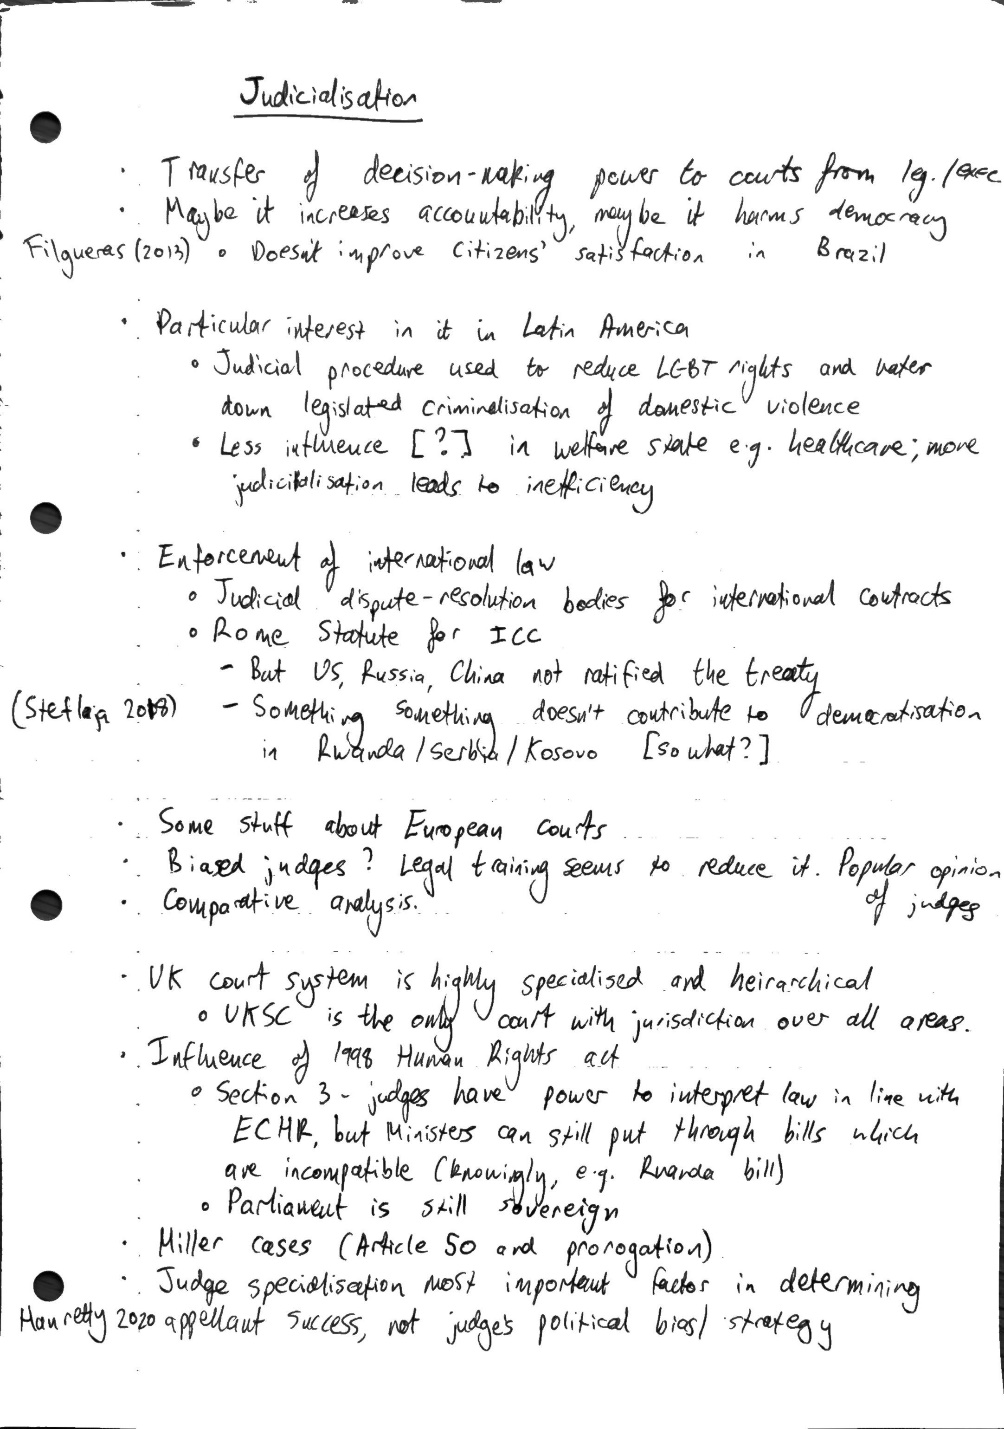 Judicialisation
· Transfer of decision-making power to courts from leg./exec
· Maybe it increases accountability, maybe it harms democracy
Filgueras (2013) ∘ Doesn't improve citizens' satisfaction in Brazil
· Particular interest in it in Latin America
∘ Judicial procedure used to reduce LGBT rights and water
down legislated criminalisation of domestic violence
∘ Less influence [?] in welfare state e.g. healthcare; more
judicialisation leads to inefficiency
· Enforcement of international law
∘ Judicial dispute-resolution bodies for international contracts
∘ Rome Statute for ICC
- But US, Russia, China not ratified the treaty
(Steflja 2018) - Something something doesn't contribute to democratisation
in Rwanda/Serbia/Kosovo [so what?]
· Some stuff about European courts
· Biased judges? Legal training seems to reduce it. Popular opinion
of judges
· Comparative analysis.
· UK court system is highly specialised and heirarchical
∘ UKSC is the only court with jurisdiction over all areas.
· Influence of 1998 Human Rights act
∘ Section 3 - judges have power to interpret law in line with
ECHR, but Ministers can still put through bills which
are incompatible (knowingly, e.g. Rwanda bill)
∘ Parliament is still sovereign
· Miller cases (Article 50 and prorogation)
· Judge specialisation most important factor in determining
Hanretty 2020 appellant success, not judge's political bias/strategy